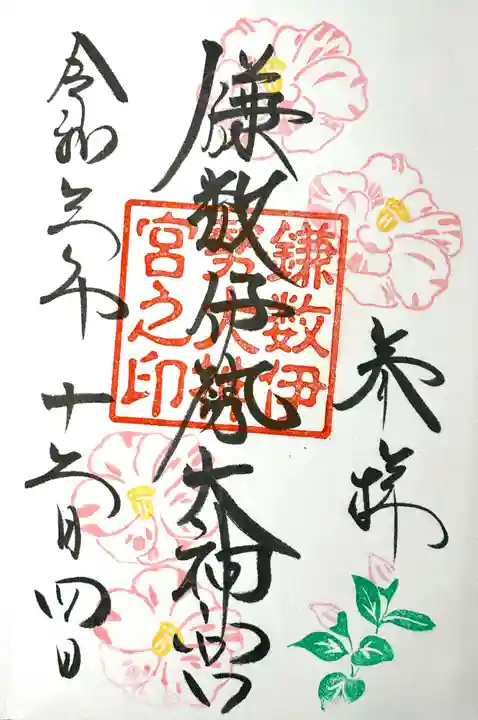 奉拝
鎌数伊勢大神宮
鎌数伊
勢大神
宮之印
令和年
十月四日